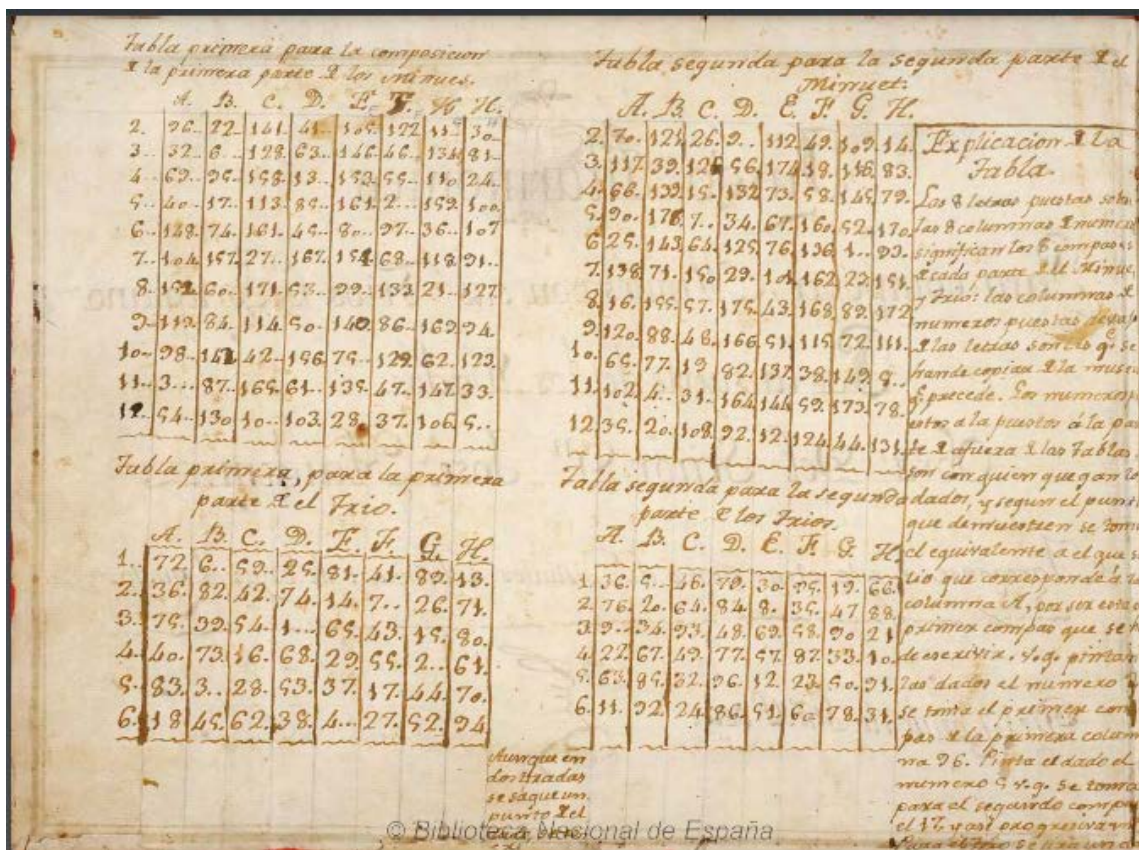 Tabla primera para la composicion
de la primera parte de los Minues.
A. B. C. D. E. F. H.
2. 96.. 22.. 141. 41.. 105. 122 11.. 30..
3.. 32.. 6... 128. 63.. 146. 46.. 134. 81..
4.. 69.. 95.. 158. 13.. 153 55.. 110 24..
5.. 40.. 17.. 113. 85.. 161. 2... 159. 100.
6.. 148. 74.. 161. 45.. 80.. 97.. 36.. 107
7.. 104. 157. 27.. 167. 154. 68.. 118. 91..
8.. 152. 60.. 171. 53.. 99.. 133. 21.. 127
9.. 119. 84. 114. 50.. 140. 86.. 169. 94.
10.. 98.. 142. 42.. 156. 75.. 129. 62. 123.
11.. 3... 87.. 165. 61.. 135. 47.. 147. 33.
12. 54.. 130. 10.. 103. 28. 37. 106 5..
Tabla primera, para la primera
parte de el Trio.
A. B. C. D. E. F. G. H.
1.. 72. 6.. 59.. 25. 81. 41. 89. 13.
2.. 36. 82. 42. 74. 14. 7.. 26. 71.
3.. 75. 39. 54. 1... 65. 43. 15. 80.
4.. 40. 73. 16. 68. 29. 55. 2... 61.
5. 83. 3.. 28. 53. 37. 17. 44. 70.
6. 18 45. 62. 38. 4... 27. 52. 94.
Aunque en
dos tiradas
se saque un
punto de el
Tabla segunda para la segunda parte de el
Minuet.
A. B. C. D. E. F. G. H.
2. 70. 121. 26. 9.. 112. 49. 109. 14.
3. 117. 39. 126. 56. 174. 18. 116. 83.
4. 66. 139. 15. 132. 73. 58. 145. 79.
5. 90. 176. 7.. 34. 67. 160. 52. 170.
6. 25. 143. 64. 125. 76. 136. 1... 93.
7. 138. 71. 150. 29. 101. 162. 23. 151.
8. 16. 155. 57. 175. 43. 168. 89. 172.
9. 120. 88. 48. 166. 51. 115. 72. 111.
10. 65. 77. 19 82. 137. 38. 149. 8..
11. 102. 4.. 31. 164. 144. 59. 173. 78.
12. 35. 20. 108. 92. 12. 124. 44. 131.
Tabla segunda para la segunda
parte de los Trios.
A. B. C. D. E. F. G. H.
1 36. 5... 46. 79. 30. 95. 19. 66.
2. 76. 20. 64. 84. 8.. 35. 47 88.
3. 9... 34. 93. 48. 69. 58. 90. 21
4. 22. 67. 49. 77. 57. 87. 33. 10.
5. 63. 85. 32. 96. 12. 23. 50. 91.
6. 11. 92. 24. 86. 51. 60 78. 31.
Explicacion de la
Tabla.
Las 8 letras puestas
las 8 columnas de
significan los 8 compases
de cada parte de el
y Trio: las columnas de
numeros puestas
de las letras son q.e se
han de copiar de la
precede. Los numeros
puestos á la
de afuera de las Tablas
son con quien que
dados, y segun el
que demuestren se
el equivalente a el que
que corresponde á
columna A, por ser
primer compas que se
de escrivir. v.g.
los dados el numero
se toma el primer
pas de la primera
na 96. Pinta el dado el
numero 5 v.g. se toma
para el segundo
el 17, y asi
© Biblioteca Nacional de España